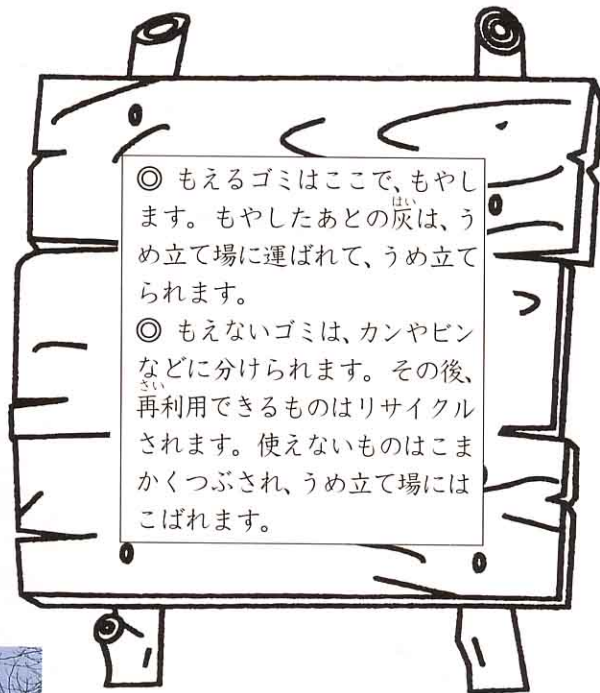 ◎ もえるゴミはここで、もやし
ます。もやしたあとの灰は、う
め立て場に運ばれて、うめ立て
られます。
◎ もえないゴミは、カンやビン
などに分けられます。その後、
再利用できるものはリサイクル
されます。使えないものはこま
かくつぶされ、うめ立て場には
こばれます。